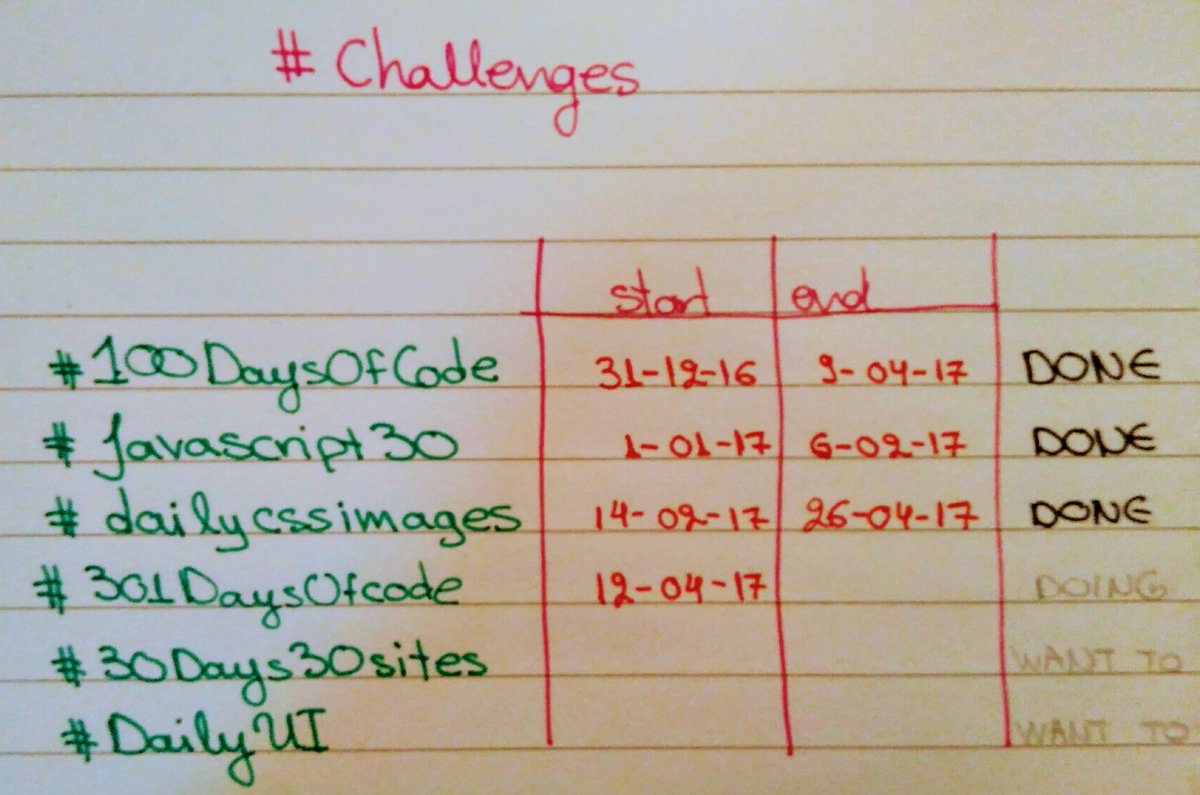 # Challenges
start end
#100DaysOfCode 31-12-16 9-04-17 DONE
# Javascript30 1-01-17 6-02-17 DONE
# dailycssimages 14-02-17 26-04-17 DONE
# 301DaysOfcode 12-04-17 DOING
#30Days30sites WANT TO
#DailyUI WANT TO